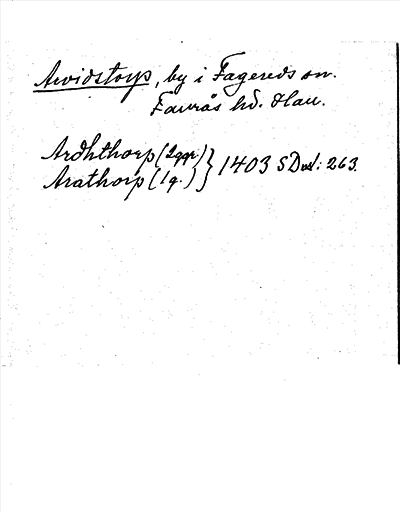 Arvidstorp, by i Fagereds sn.
Faurås hd. Hall.
Ardhthorp (2ggr) } 1403 SDns1: 263.
Arathorp (1 g.)